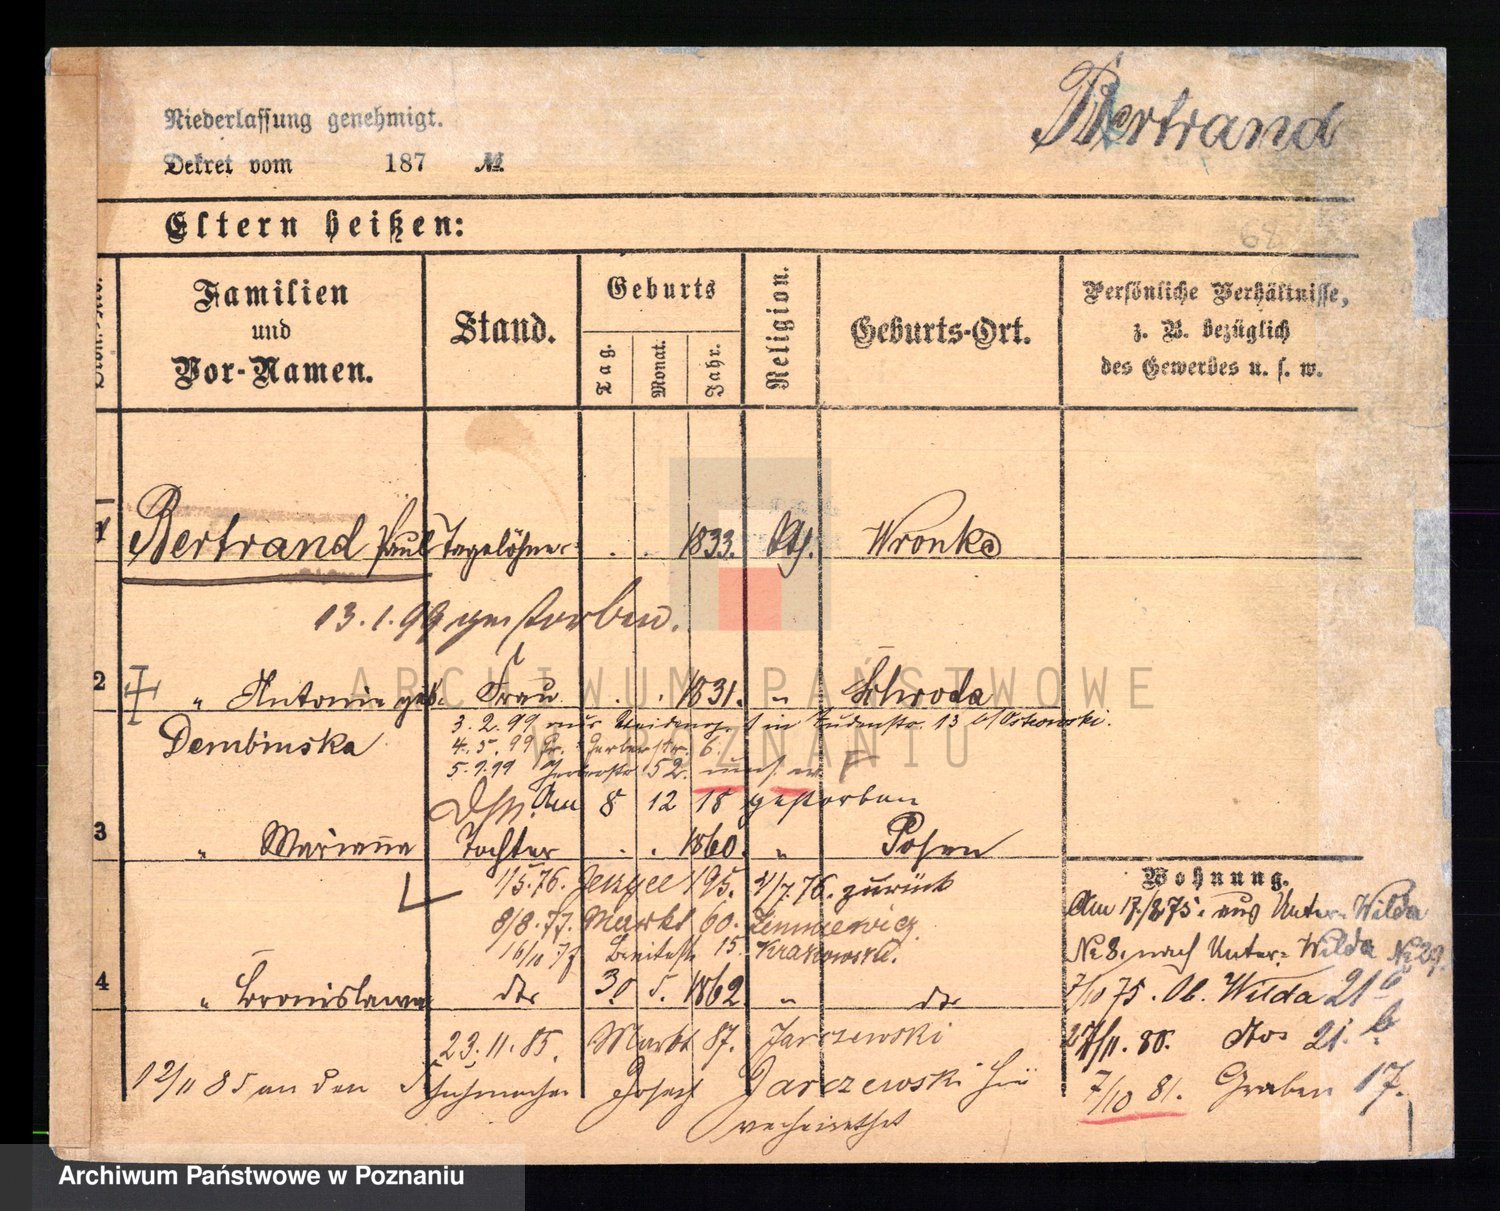 Bertrand
Niederlassung genehmigt.
Dekret vom 187 №
68
Eltern heißen:
Familien
und
Vor-Namen.
Stand.
Geburts
Tag.
Monat.
Jahr.
Religion.
Geburts-Ort.
Persönliche Verhältnisse,
z. B. bezüglich
des Gewerbes u. s. w.
1 Bertrand Paul Tagelöhner . . 1833. Kth. Wronke
13.1.99 gestorben.
2 " Antonie geb. Frau . . 1831. " Schroda
Dembinska
3.2.99 aus in Judenstr. 13 b/Ostrowski.
4.5.99 Gr. Gerberstr. 6.
5.9.99 Gerberstr. 52
Am 8 12 18 gestorben
3 " Marianna Tochter . . 1860. " Posen
1/5.76. Jerzyce 195. 4/7.76. zurück
8/8.77. Markt 60.
16/10 77 Breitestr. 15. Krakowski.
4 " Bronislawa dto 30 5. 1862. " dto
23.11.85. Markt 87. Jarczewski
12/11 85 an den Schuhmacher Joseph Jarczewski hier
verheirathet
Wohnung.
Am 17./8.75. aus Unter-Wilda
No 8. nach Unter-Wilda No 29.
7/10 75. Ob. Wilda 21 b
27/11. 80. dto 21. b.
7/10 81. Graben 17.
ARCHIWUM PAŃSTWOWE
W POZNANIU
Archiwum Państwowe w Poznaniu